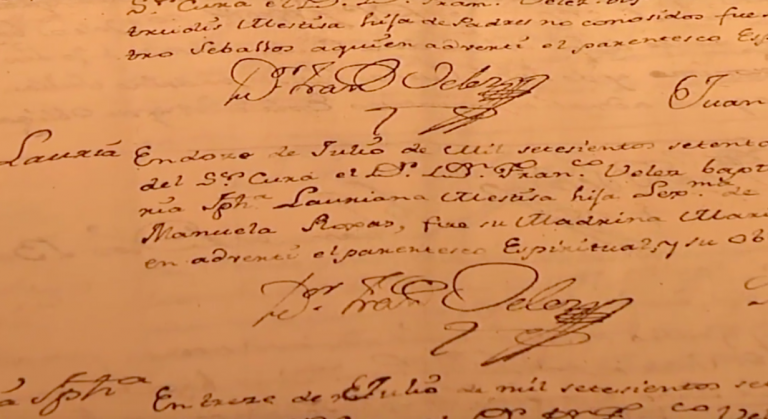 Sr. Cura el Dr. D. Fran. Velez
trudis Mestisa hija de Padres no conosidos fue
tro Seballos aquien adverti el parentesco Esp
Dr. Fran. Velez
Juan
Lauriã En doze de Julio de Mil setesientos setenta
del Sr. Cura el Dr. D. Fran.co Velez bapt
ria Jpha. Lauriana Mestisa hija Lexma. de
Manuela Roxas, fue su Madrina Mari
en adverti el parentesco Espiritual, y su ob
Dr. Fran. Velez
Jpha En treze de Julio de mil setesientos se